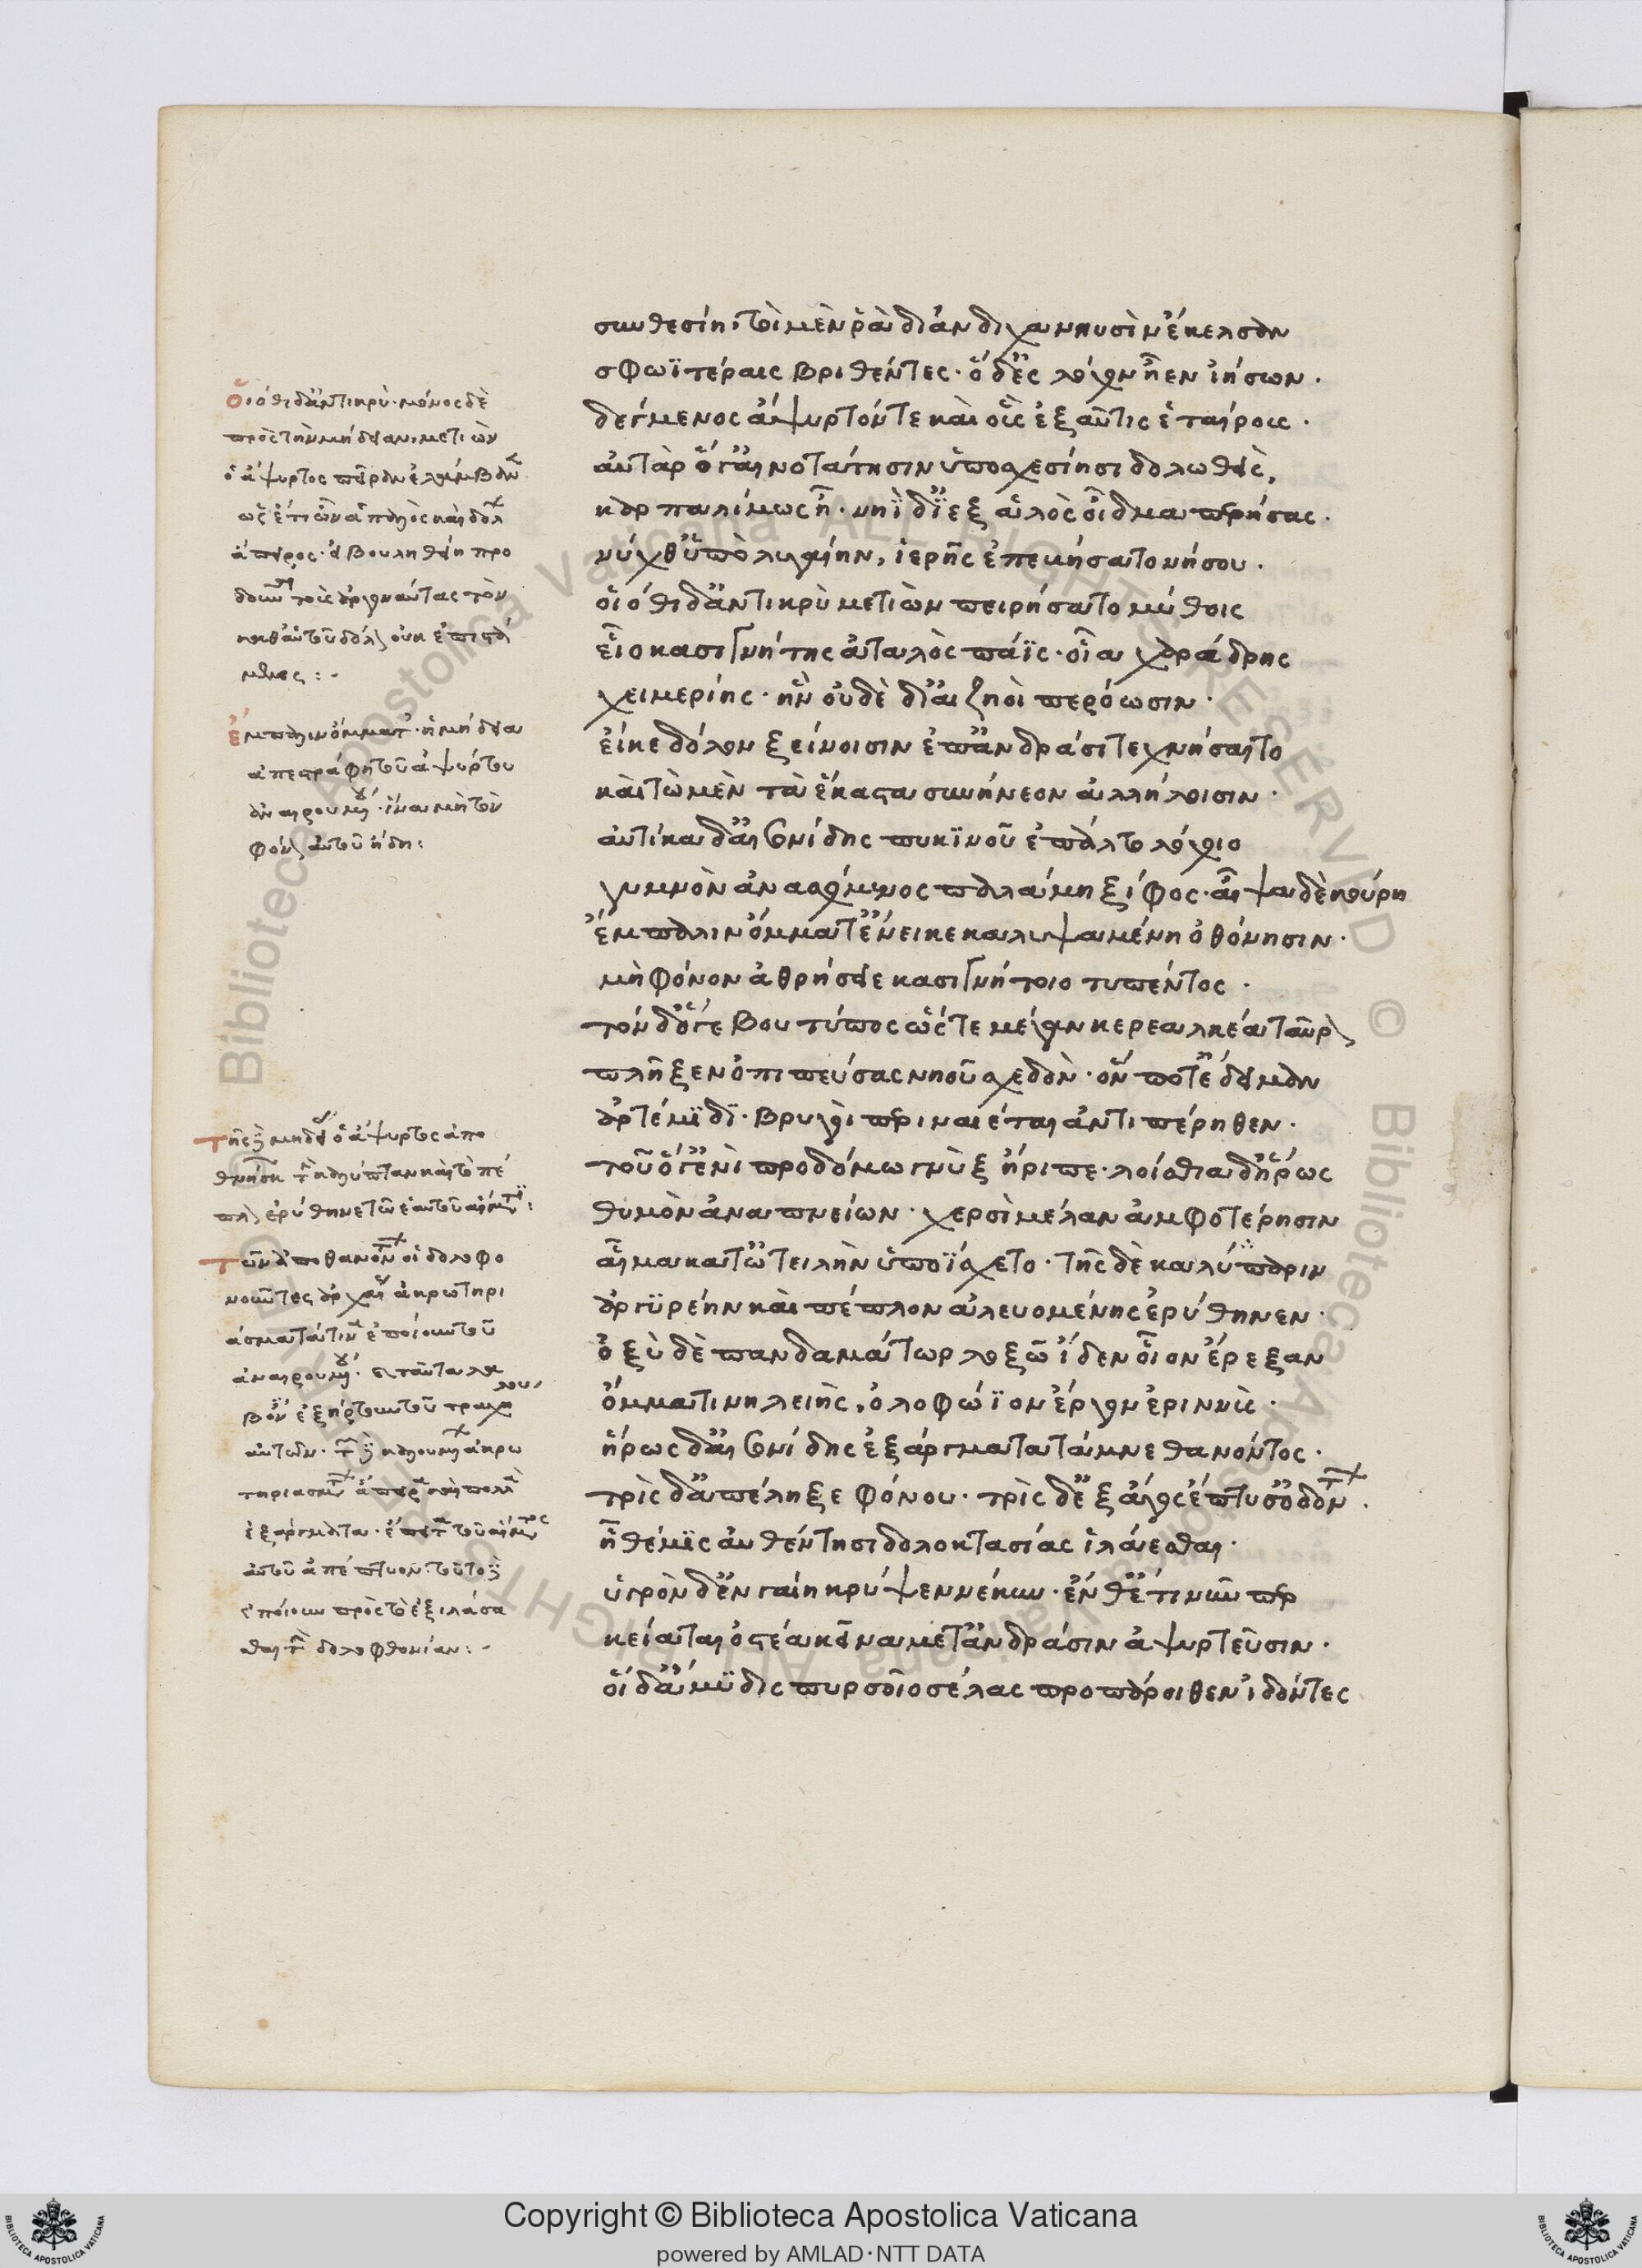 συνθεσίη· τοὶ μὲν ῥὰ διάνδιχα νηυσὶν ἔκελσαν
σφωϊτέραις βριθέντες· ὁ δ' ἐς λόχον ἦεν ἰήσων·
δέγμενος ἄψυρτόν τε καὶ οἷς ἐξαῦτις ἑταίροις·
αὐτὰρ ὅ γ' αἰνοτάτησιν ὑποσχεσίησι δολωθεὶς,
καρπαλίμως ἧ· νηῒ διὲξ ἁλὸς οἶδμα περήσας·
νύχθ' ὕπο λυγαίην, ἱερῆς ἐπεβήσατο νήσου·
οἰόθι δ' ἀντικρὺ μετιὼν πειρήσατο μύθοις
εἷο κασιγνήτης ἀταλὸς πάϊς· οἷα χαράδρης
χειμερίης· ἣν οὐδὲ δι' αἰζηοὶ περόωσιν·
εἴ κε δόλον ξείνοισιν ἐπ' ἀνδράσι τεχνήσαιτο
καὶ τὼ μὲν τὰ ἕκαστα συνήνεον ἀλλήλοισιν·
αὐτίκα δ' αἰσονίδης πυκϊνοῦ ἐπᾶλτο λόχοιο
γυμνὸν ἀνασχόμενος παλάμη ξίφος· αἶψα δὲ κούρη
ἔμπαλιν ὄμματ' ἔνεικε καλυψαμένη ὀθόνησιν·
μὴ φόνον ἀθρήσειε κασιγνήτοιο τυπέντος·
τὸν δ' ὅγε βουτύπος ὥς τε μέγαν κερεαλκέα ταῦρον
πλῆξεν ὀπιπεύσας νηοῦ σχεδὸν· ὅν ποτ' ἔδειμαν
ἀρτέμϊδϊ· βρυγοὶ περιναιέται ἀντιπέρηθεν·
τοῦ ὅγ' ἐνὶ προδόμω γνὺξ ἤριπε· λοίσθια δ' ἥρως
θυμὸν ἀναπνείων· χερσὶ μέλαν ἀμφοτέρησιν
αἷμα κατ' ὠτειλὴν ὑποΐσχετο· τῆς δὲ καλύπτριν
ἀργϋρέην καὶ πέπλον ἀλευομένης ἐρύθηνεν·
ὀξὺ δὲ πανδαμάτωρ λοξῶ ἴδεν οἷον ἔρεξαν
ὄμματι νηλειὴς, ὀλοφώϊον ἔργον ἐριννὺς·
ἥρως δ' αἰσονίδης ἐξάργματα τάμνε θανόντος·
τρὶς δ' ἀπέληξε φόνου· τρὶς δ' ἐξ ἄγος ἔπτυσ' ὀδόντων·
ἣ θέμϊς αὐθέντησι δολοκτασίας ἱλάεσθαι·
ὑγρὸν δ' ἐν γαίη κρύψεν νέκυν· ἔνθ' ἔτι νῦν περ
κείαται ὀστέα κεῖνα μετ' ἀνδράσιν ἀψυρτεῦσιν·
οἱ δ' ἄμϋδις πυρσοῖο σέλας προπάροιθεν ἰδόντες
οἰόθι δ' ἀντικρὺ· μόνος δὲ
πρὸς τὴν μήδειαν, μετιὼν
ὁ ἄψυρτος πεῖραν ἐλάμβανεν
ὡς ἔτι ὢν ἁπαλὸς καὶ δόλων
ἄπειρος· ἐβουλήθη προ
δοῦναι τοὺς ἀργοναύτας τὸν
καθ' αὑτοῦ δόλον οὐκ ἐπιστά
μενος:-
ἔμπαλιν ὄμματ'· ἡ μήδεια
ἀπεστράφη τοῦ ἀψύρτου
ἀναιρουμένου· ἵνα μὴ τὸν
φόνον αὐτοῦ ἴδη:
Τῆς δὲ μηδείας ὁ ἄψυρτος ἀπο
θνήσκων τὴν καλύπτραν καὶ τὸ πέ
πλον ἐρύθηνε τῶ ἑαυτοῦ αἵματι:
Τῶν ἀποθανόντων οἱ δολοφο
νοῦντες ἀρχὴν ἀκρωτηρι
άσματά τινα ἐποίουν τοῦ
ἀναιρουμένου· καὶ ταῦτα λα
βόντες ἐξήρτουν τοῦ τραχήλου
αὐτῶν· τὰ δὲ καλούμενα ἀκρω
τηριάσματα
ἐξάργματα· ἔπειτα τοῦ αἵματος
αὐτοῦ ἀπέπτυον· τοῦτο δὲ
ἐποίουν πρὸς τὸ ἐξιλάσα
σθαι τὴν δολοφονίαν:-
Copyright © Biblioteca Apostolica Vaticana
powered by AMLAD·NTT DATA